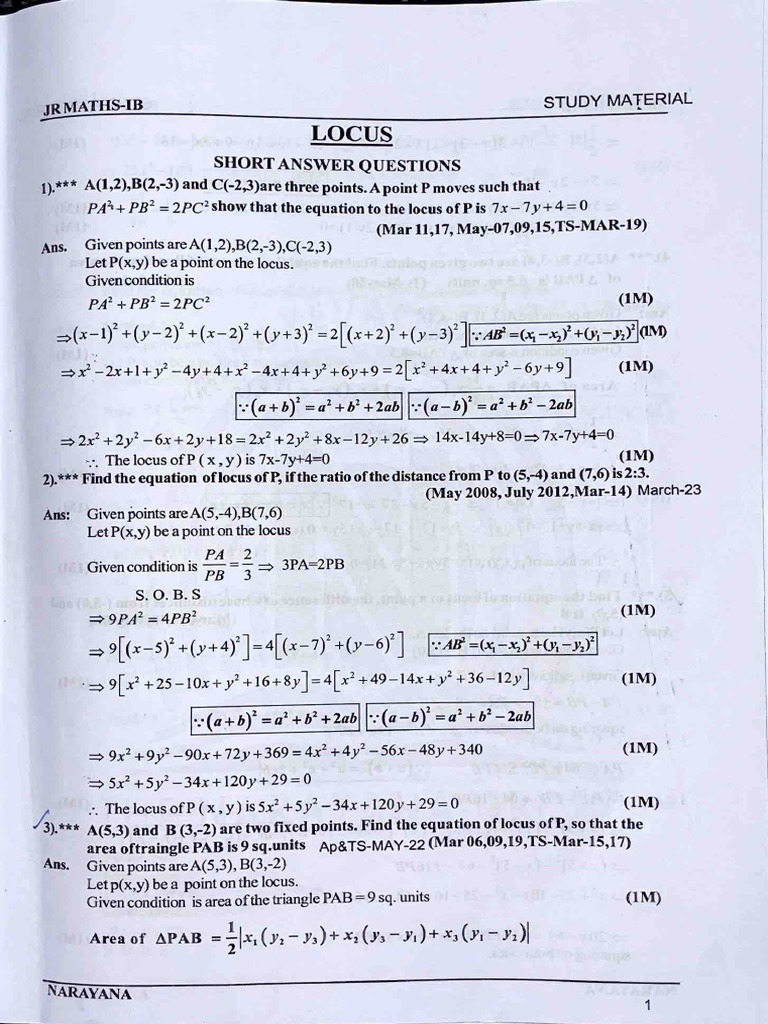 JR MATHS-IB STUDY MATERIAL
LOCUS
SHORT ANSWER QUESTIONS
1).*** A(1,2),B(2,-3) and C(-2,3)are three points. A point P moves such that
PA² + PB² = 2PC² show that the equation to the locus of P is 7x – 7y + 4 = 0
(Mar 11,17, May-07,09,15,TS-MAR-19)
Ans. Given points are A(1,2),B(2,-3),C(-2,3)
Let P(x,y) be a point on the locus.
Given condition is
PA² + PB² = 2PC² (1M)
⇒(x–1)² + (y–2)² + (x–2)² + (y+3)² = 2[(x+2)² + (y–3)²] ∵ AB² = (x₁ – x₂)² + (y₁ – y₂)² (1M)
⇒x² – 2x + 1 + y² – 4y + 4 + x² – 4x + 4 + y² + 6y + 9 = 2[x² + 4x + 4 + y² – 6y + 9] (1M)
∵(a + b)² = a² + b² + 2ab ∵(a – b)² = a² + b² – 2ab
⇒ 2x² + 2y² – 6x + 2y + 18 = 2x² + 2y² + 8x – 12y + 26 ⇒ 14x-14y+8=0 ⇒ 7x-7y+4=0
∴ The locus of P ( x , y ) is 7x-7y+4=0 (1M)
2).*** Find the equation of locus of P, if the ratio of the distance from P to (5,-4) and (7,6) is 2:3.
(May 2008, July 2012,Mar-14) March-23
Ans: Given points are A(5,-4),B(7,6)
Let P(x,y) be a point on the locus
Given condition is PA/PB = 2/3 ⇒ 3PA=2PB
S. O. B. S
⇒ 9PA² = 4PB² (1M)
⇒ 9[(x–5)² + (y+4)²] = 4[(x–7)² + (y–6)²] ∵ AB² = (x₁ – x₂)² + (y₁ – y₂)²
⇒ 9[x² + 25 – 10x + y² + 16 + 8y] = 4[x² + 49 – 14x + y² + 36 – 12y] (1M)
∵(a + b)² = a² + b² + 2ab ∵(a – b)² = a² + b² – 2ab
⇒ 9x² + 9y² – 90x + 72y + 369 = 4x² + 4y² – 56x – 48y + 340 (1M)
⇒ 5x² + 5y² – 34x + 120y + 29 = 0
∴ The locus of P ( x , y ) is 5x² + 5y² – 34x + 120y + 29 = 0 (1M)
3).*** A(5,3) and B (3,-2) are two fixed points. Find the equation of locus of P, so that the
area of traingle PAB is 9 sq.units Ap&TS-MAY-22 (Mar 06,09,19,TS-Mar-15,17)
Ans. Given points are A(5,3), B(3,-2)
Let p(x,y) be a point on the locus.
Given condition is area of the triangle PAB = 9 sq. units (1M)
Area of ΔPAB = 1/2 |x₁(y₂ – y₃) + x₂(y₃ – y₁) + x₃(y₁ – y₂)|
NARAYANA 1